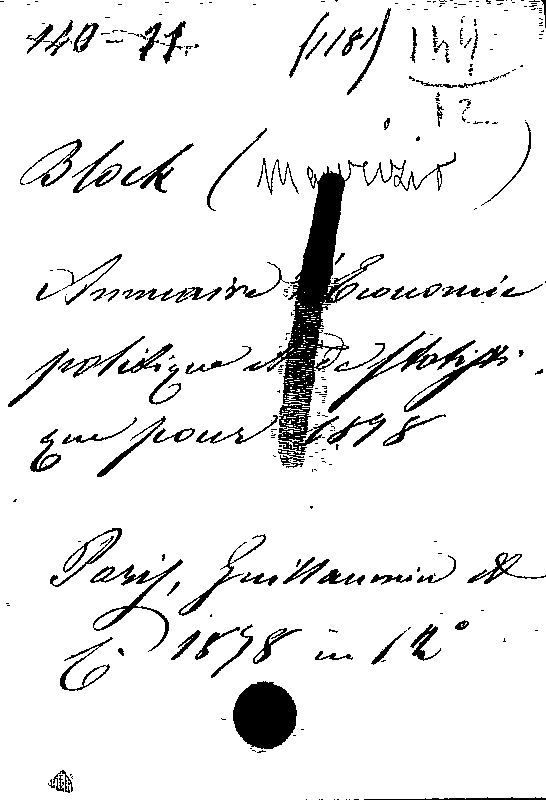 140-11. (1181) 149
12
Block (Maurizio)
Annuaire d'Économie
politique et de statisti-
que pour 1898
Paris, Guillaumin et
C. 1898 in 12°